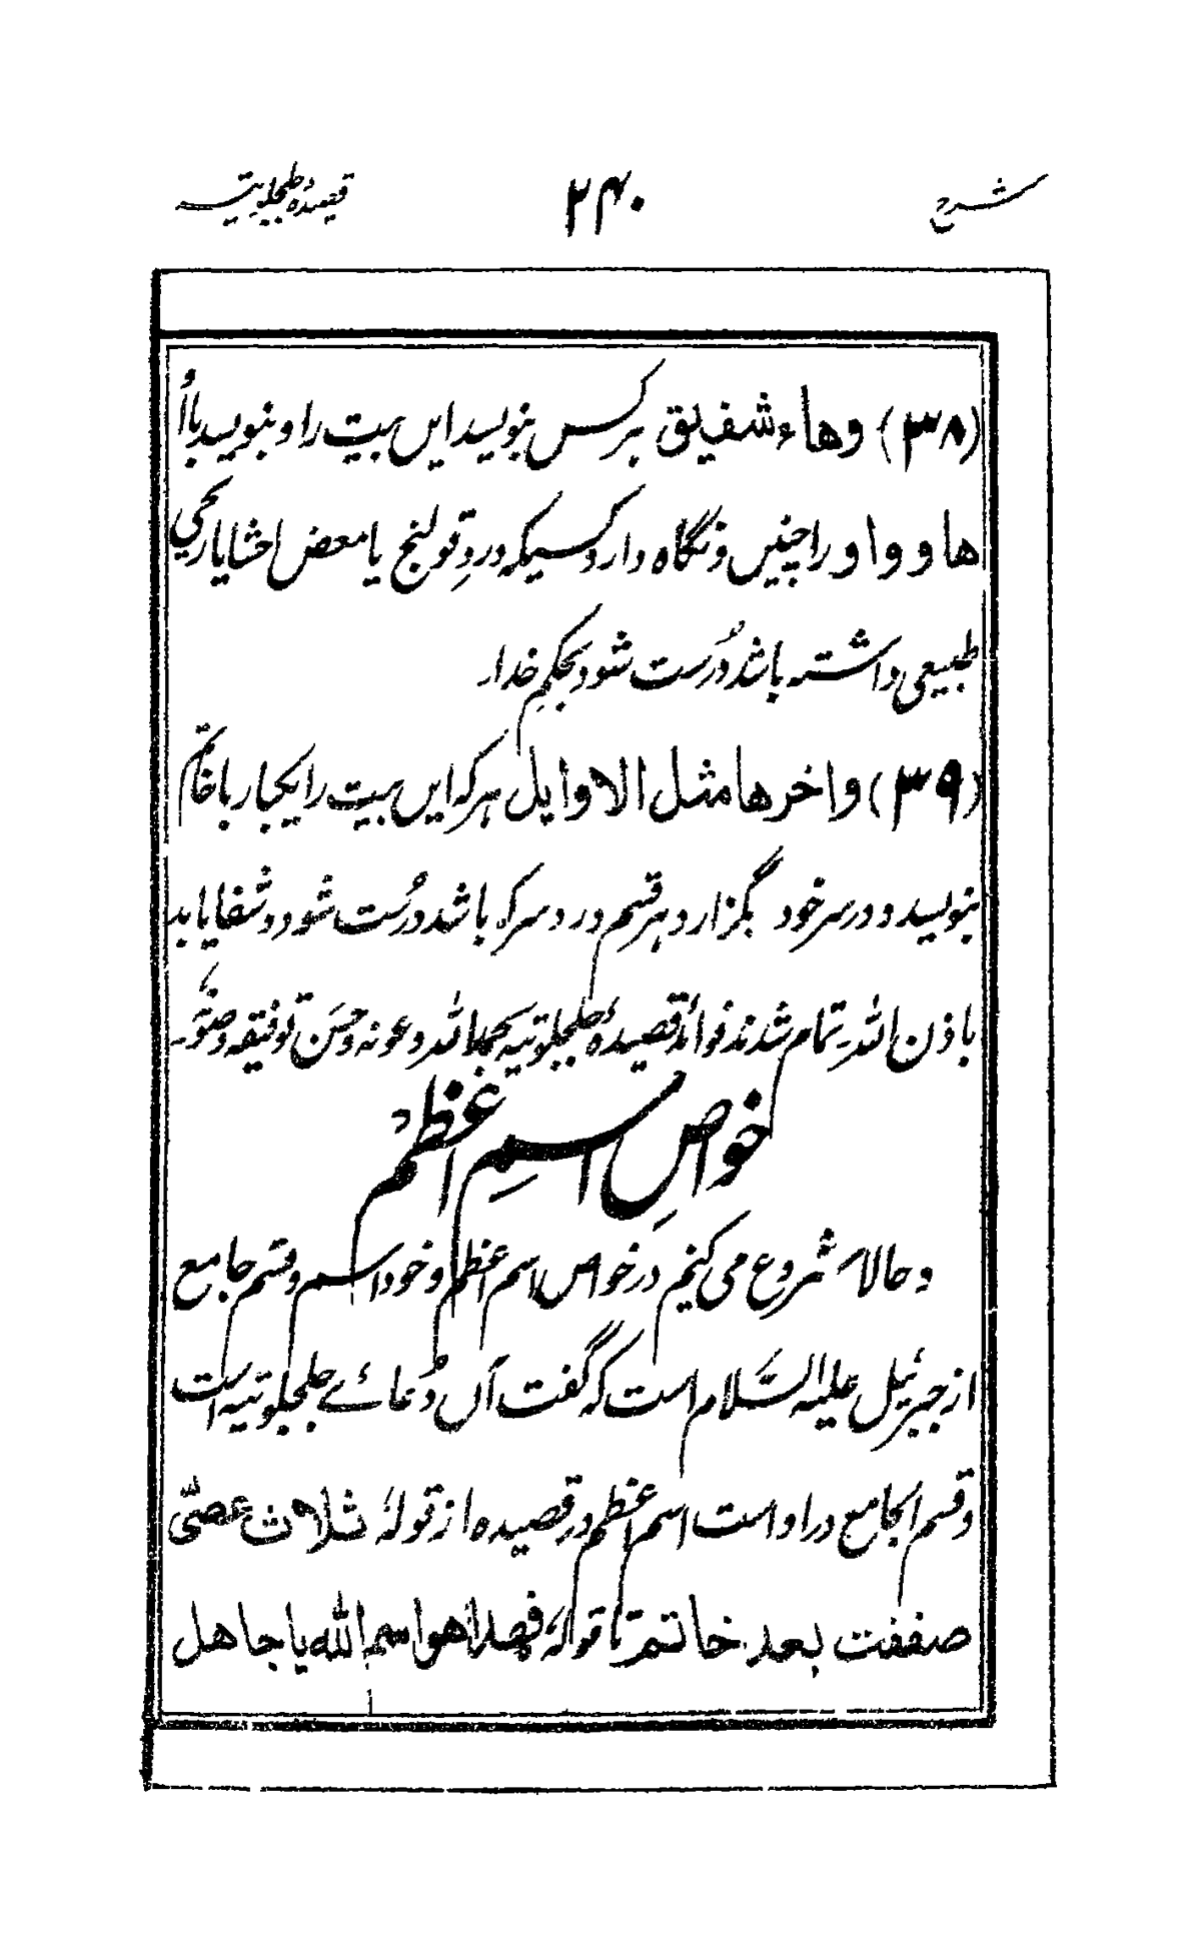 شرح ۲۴۰ قصیدۂ جلجلوتیہ
(۳۸) وهاء شفیق ہر کس بنویسد ایں بیت را و بنویسد با
ها و واو را چنیں و نگاہ دارد کسیکہ دردِ قولنج یا معض احشا یا ریحی
طبیعی داشتہ باشد دُرست شود بحکمِ خدا۔
(۳۹) واخرها مثل الاوایل ہر کہ ایں بیت را یکبار با خاتم
بنویسد و در سر خود بگزارد ہر قسم درد سر کہ باشد درُست شود و شفا یابد
باذن اللہِ تمام شدند فوائد قصیدۂ جلجلوتیہ بحمداللہ وعونہ وحسن توفیقہ
خواصِ اسمِ اعظم
و حالا شروع می کنیم در خواص اسم اعظم و خود اسم و قسم جامع
از جبرئیل علیہ السَّلام است کہ گفت آں دُعائے جلجلوتیہ است
و قسم الجامع در او است اسم اعظم در قصیدہ از قولہٗ ثلاث عصیّ
صففت بعد خاتم تا قولہٗ فهذا هو اسم الله یا جاهل